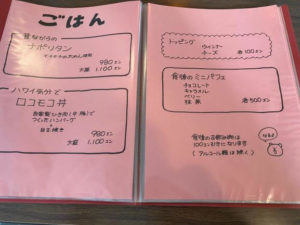 ごはん
昔ながらの
ナポリタン
980エン
大盛 1,100エン
ハワイ気分で
ロコモコ丼
つくったハンバーグ
+
目玉焼き
980エン
大盛 1,100エン
トッピング
ウィンナー
チーズ
各100エン
食後のミニパフェ
チョコレート
キャラメル
ベリー
抹茶
各500エン
食後のお飲み物は
100エン引きになります
(アルコール類は除く)